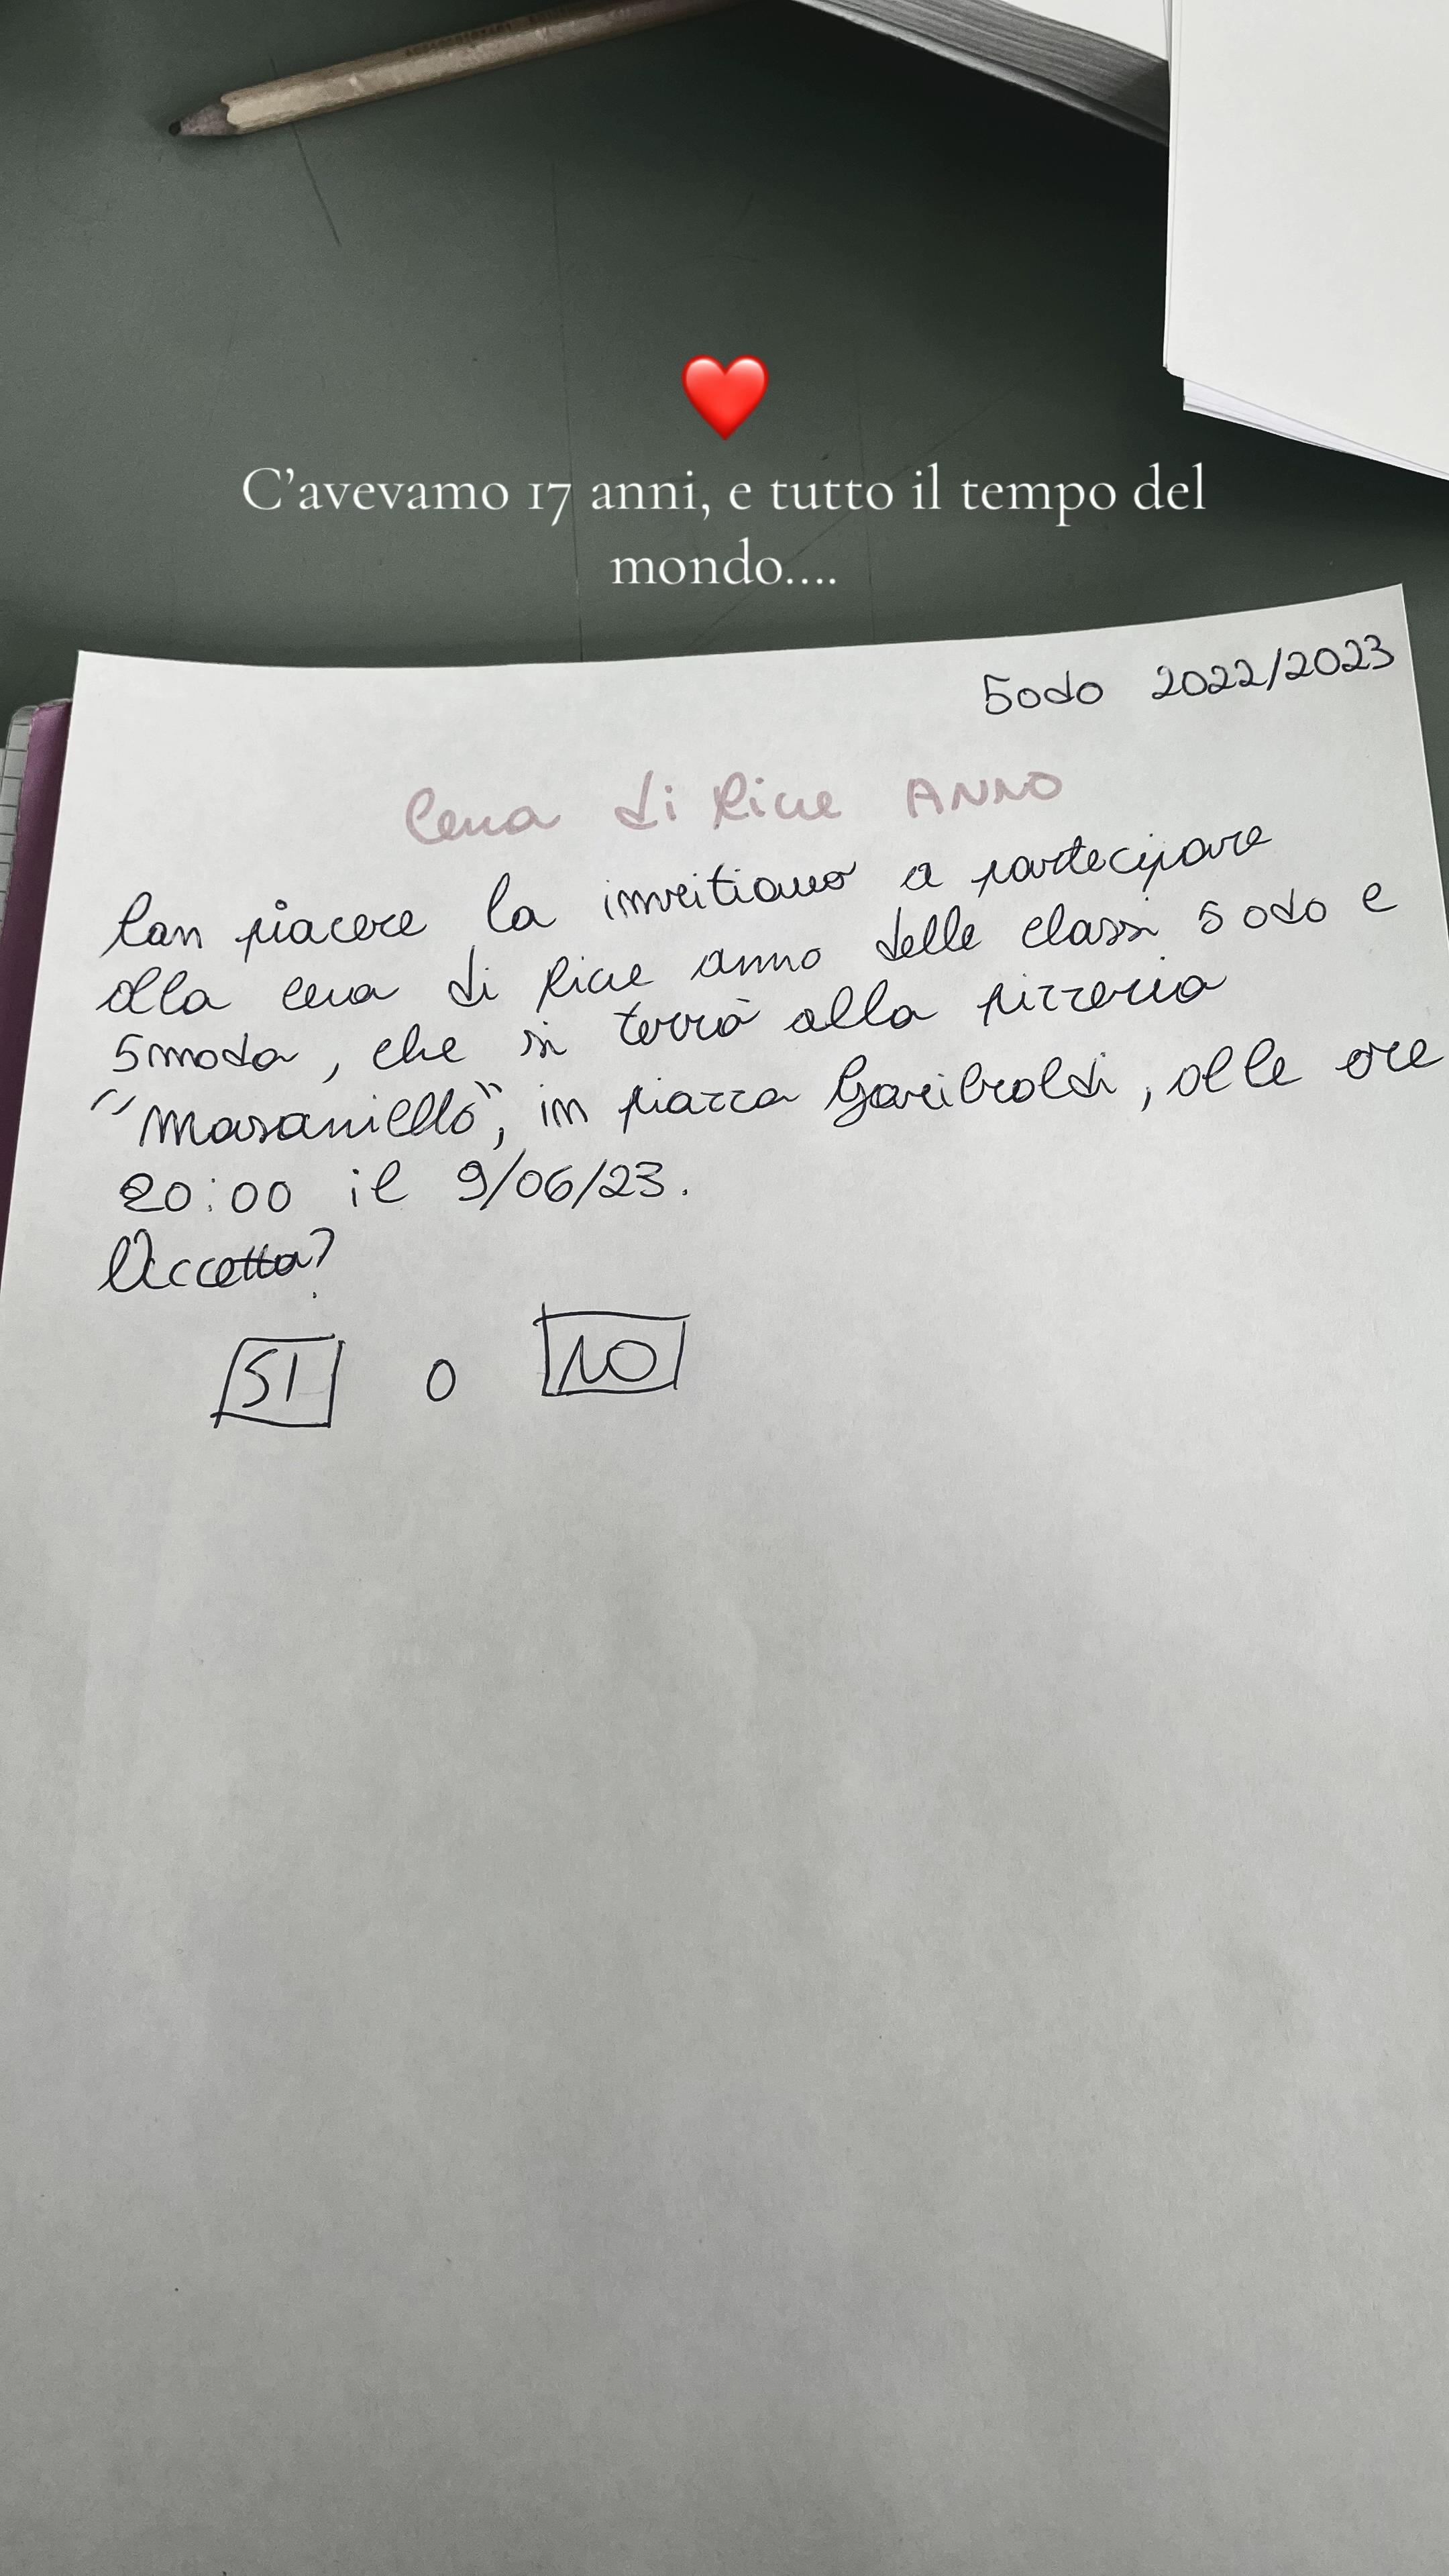 ❤️
C'avevamo 17 anni, e tutto il tempo del
mondo....
5odo 2022/2023
Cena di fine ANNO
Con piacere la invitiamo a partecipare
alla cena di fine anno delle classi 5 odo e
5moda, che si terrà alla pizzeria
"Masaniello", in piazza Garibaldi, alle ore
20:00 il 9/06/23.
Accetta?
SI o NO